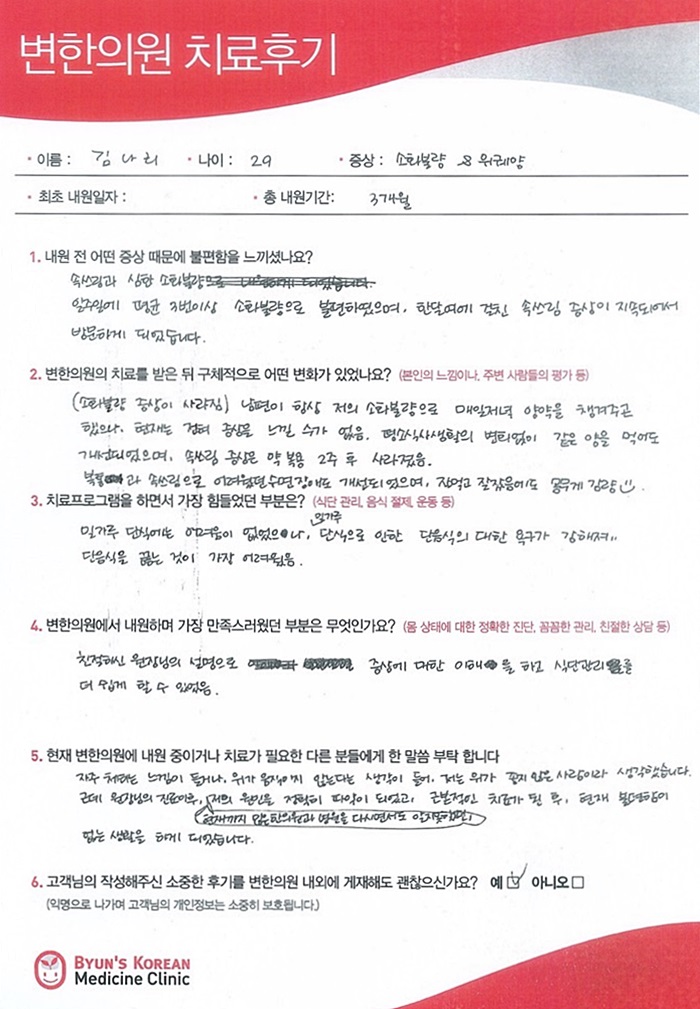 변한의원 치료후기
이름 : 김나리 나이 : 29 증상 : 소화불량 & 위궤양
최초 내원일자 : 총 내원기간: 3개월
1. 내원 전 어떤 증상 때문에 불편함을 느끼셨나요?
속쓰림과 심한 소화불량으로 내원하게 되었습니다.
일주일에 평균 3번이상 소화불량으로 불편하였으며, 한달여에 걸친 속쓰림 증상이 지속되어서
방문하게 되었습니다.
2. 변한의원의 치료를 받은 뒤 구체적으로 어떤 변화가 있었나요? (본인의 느낌이나, 주변 사람들의 평가 등)
(소화불량 증상이 사라짐) 남편이 항상 저의 소화불량으로 매일저녁 양약을 챙겨주곤
했으나, 현재는 전혀 증상을 느낄 수가 없음. 평소식사생활의 변화없이 같은 양을 먹어도
개선되었으며, 속쓰림 증상은 약 복용 2주 후 사라졌음.
라 속쓰림으로 어려웠던수면장애도 개선되었으며, 잘먹고 잘잤음에도 몸무게 감량
3. 치료프로그램을 하면서 가장 힘들었던 부분은? (식단 관리, 음식 절제, 운동 등)
밀가루
밀가루 단식에는 어려움이 없었으나, 단식으로 인한 단음식의 대한 욕구가 강해져..
단음식을 끊는 것이 가장 어려웠음.
4. 변한의원에서 내원하며 가장 만족스러웠던 부분은 무엇인가요? (몸 상태에 대한 정확한 진단, 꼼꼼한 관리, 친절한 상담 등)
친절하신 원장님의 설명으로 증상에 대한 이해을 하고 식단관리를
더 쉽게 할 수 있었음.
5. 현재 변한의원에 내원 중이거나 치료가 필요한 다른 분들에게 한 말씀 부탁 합니다
자주 체하는 느낌이 들거나, 위가 움직이지 않는다는 생각이 들어, 저는 위가 좋지 않은 사람이라 생각했습니다.
근데 원장님의 진료이후, 저의 원인을 정확히 파악이 되었고, 근본적인 치료가 된 후, 현재 불편함이
현재까지 많은한의원과 병원을 다니면서도 알지못하였던,
없는 생활을 하게 되었습니다.
6. 고객님의 작성해주신 소중한 후기를 변한의원 내외에 게재해도 괜찮으신가요? 예 아니오
(익명으로 나가며 고객님의 개인정보는 소중히 보호됩니다.)
BYUN'S KOREAN
Medicine Clinic